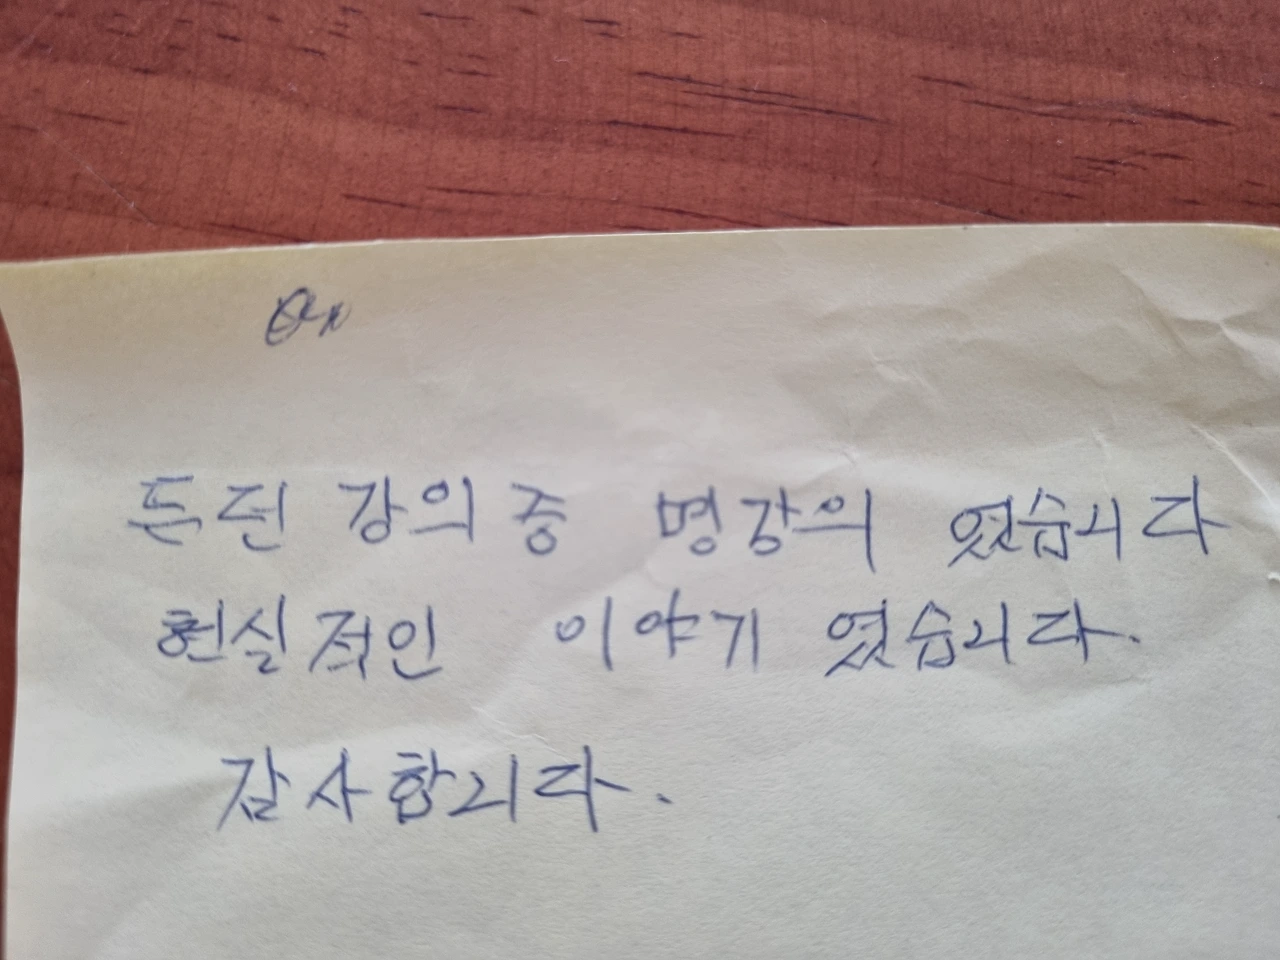 든던 강의 중 명강의 였습니다
현실적인 이야기 였습니다.
감사합니다.